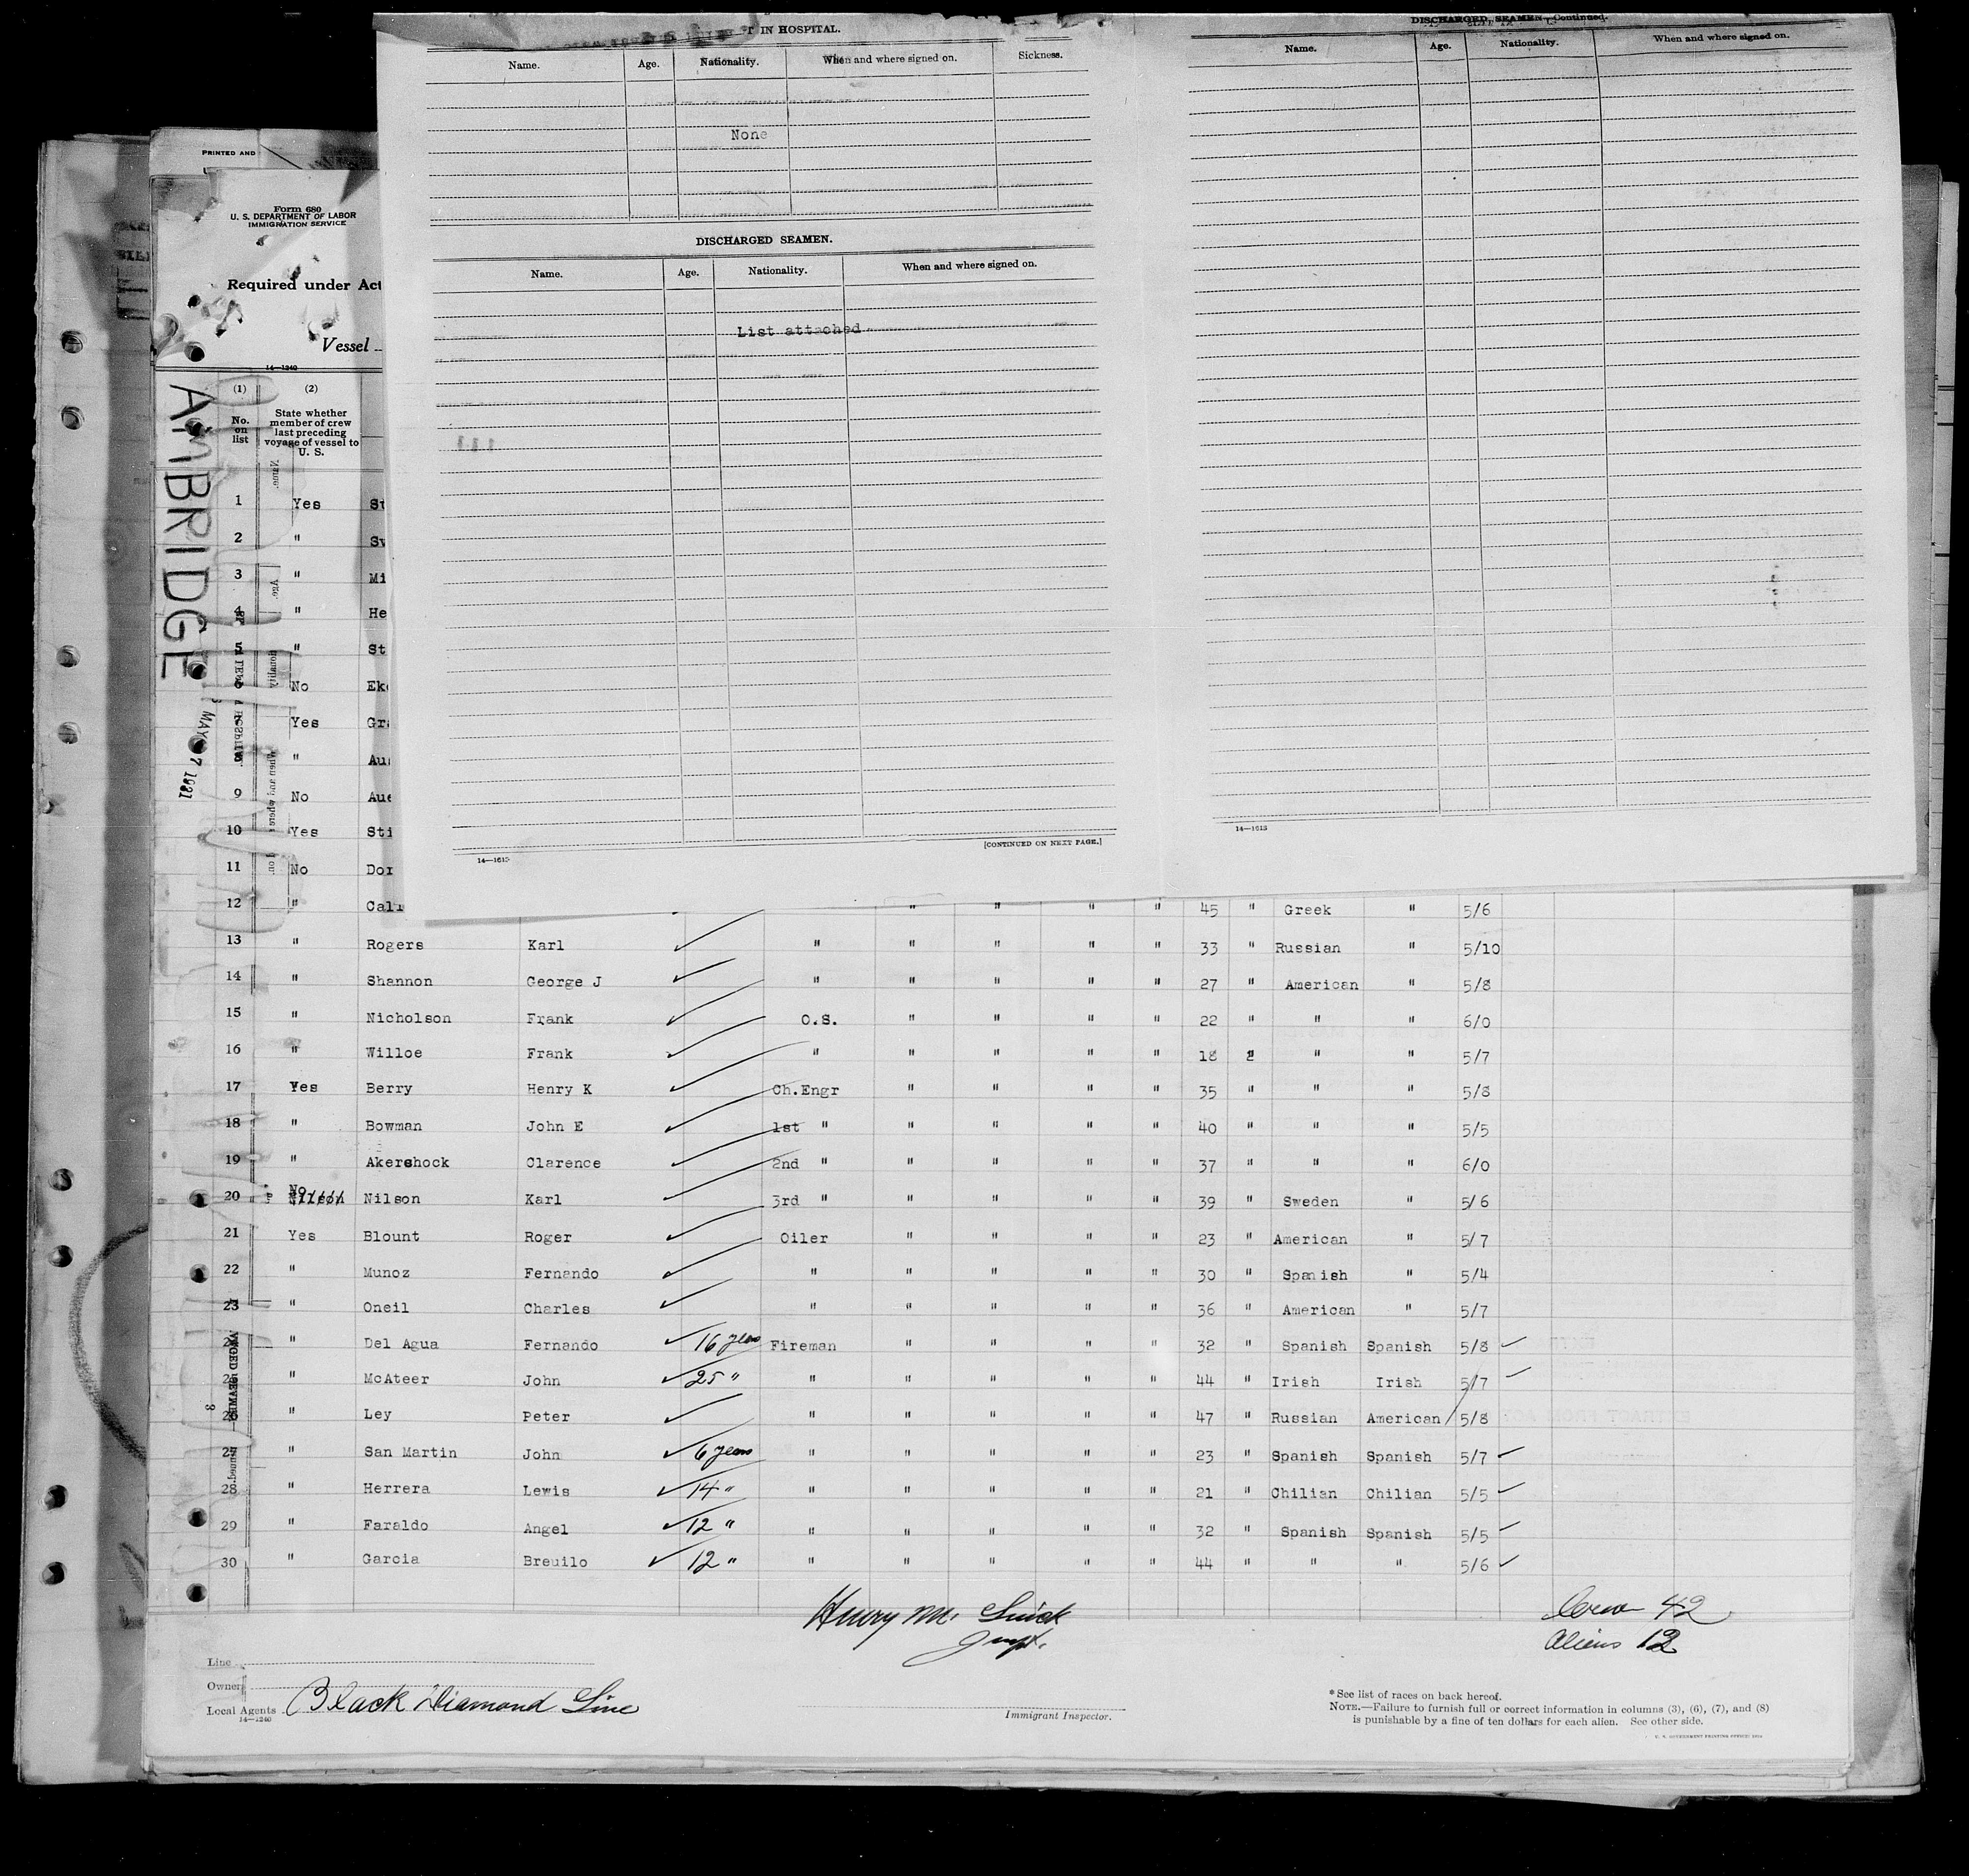 T IN HOSPITAL.
Name. Age. Nationality. When and where signed on. Sickness.
None
DISCHARGED SEAMEN.
Name. Age. Nationality. When and where signed on.
List attached
14—1613
[CONTINUED ON NEXT PAGE.]
DISCHARGED SEAMEN—Continued.
Name. Age. Nationality. When and where signed on.
14—1613
PRINTED AND
Form 680
U. S. DEPARTMENT OF LABOR
IMMIGRATION SERVICE
Required under Act
Vessel
14—1240
AMBRIDGE
MAY 7 1931
(1) (2)
No. on list
State whether member of crew last preceding voyage of vessel to U. S.
1 Yes
2 "
3 " Mi
4 " He
5 " St
No Ek
Yes Gr
" Au
9 No Aue
10 Yes Sti
11 No Dor
12 " Cali " " " " 45 " Greek " 5/6
13 " Rogers Karl " " " " " 33 " Russian " 5/10
14 " Shannon George J " " " " " 27 " American " 5/8
15 " Nicholson Frank O.S. " " " " 22 " " " 6/0
16 " Willoe Frank " " " " " 18 2 " " 5/7
17 Yes Berry Henry K Ch.Engr " " " " 35 " " " 5/8
18 " Bowman John E 1st " " " " " 40 " " " 5/5
19 " Akershock Clarence 2nd " " " " " 37 " " " 6/0
20 No Nilson Karl 3rd " " " " " 39 " Sweden " 5/6
21 Yes Blount Roger Oiler " " " " 23 " American " 5/7
22 " Munoz Fernando " " " " " 30 " Spanish " 5/4
23 " Oneil Charles " " " " " 36 " American " 5/7
" Del Agua Fernando 16 years Fireman " " " " 32 " Spanish Spanish 5/8
" McAteer John 25 " " " " " " 44 " Irish Irish 5/7
26 " Ley Peter " " " " " 47 " Russian American 5/8
27 " San Martin John 6 years " " " " " 23 " Spanish Spanish 5/7
28 " Herrera Lewis 14 " " " " " " 21 " Chilian Chilian 5/5
29 " Faraldo Angel 12 " " " " " " 32 " Spanish Spanish 5/5
30 " Garcia Breuilo 12 " " " " " " 44 " " " 5/6
Henry M.
Crew 42
Aliens 12
Line
Owners
Local Agents Black Diamond Line
14—1240
Immigrant Inspector.
* See list of races on back hereof.
NOTE.—Failure to furnish full or correct information in columns (3), (6), (7), and (8)
is punishable by a fine of ten dollars for each alien. See other side.
U. S. GOVERNMENT PRINTING OFFICE: